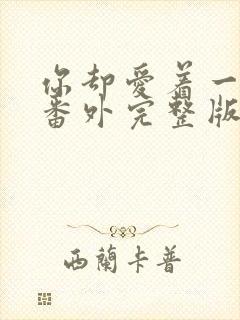 你却爱着一
番外完整版
西兰卡普